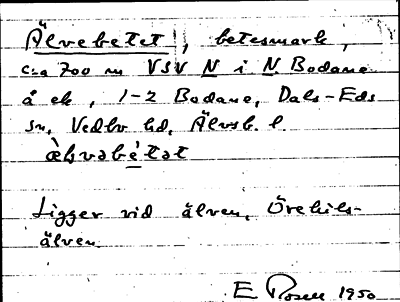 Älvebetet, betesmark,
c:a 700 m VSV N i N. Bodane
å ek, 1-2 Bodane, Dals-Eds
sn, Vedbo hd, Älvsb. l.
æ̀lvəbé̱tət
Ligger vid älven, Örekils-
älven.
E Rosell 1950